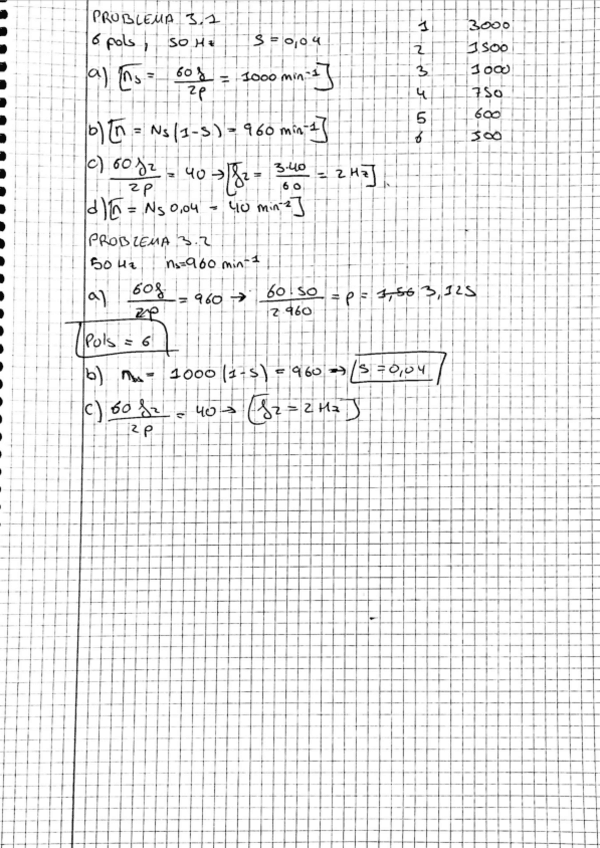 PROBLEMA 3.1
6 pols, 50 Hz S = 0,04
a) [ns = 60f / 2p = 1000 min⁻¹]
b) [n = Ns (1-S) = 960 min⁻¹]
c) 60 f2 / 2p = 40 → [f2 = 3·40 / 60 = 2 Hz].
d) [n = Ns 0,04 = 40 min⁻¹]
1 3000
2 1500
3 1000
4 750
5 600
6 500
PROBLEMA 3.2
50 Hz ns=960 min⁻¹
a) 60f / 2p = 960 → 60·50 / 2 960 = p = 1,56 3,125
Pols = 6
b) n = 1000 (1-S) = 960 → S = 0,04
c) 60 f2 / 2p = 40 → [f2 = 2 Hz]